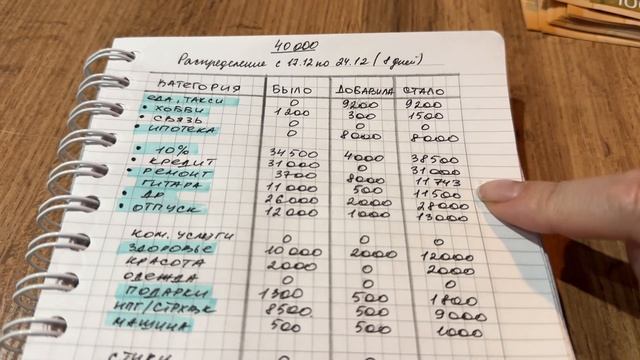 40 000
Распределение с 17.12 по 24.12 (8 дней)
КАТЕГОРИЯ БЫЛО ДОБАВИЛА СТАЛО
ЕДА, ТАКСИ 0 9200 9200
• ХОББИ 1200 300 1500
• СВЯЗЬ 0 0 0
• ИПОТЕКА 0 8000 8000
• 10% 34500 4000 38500
• КРЕДИТ 31000 0 31000
• РЕМОНТ 3700 8000 11743
ГИТАРА 11000 500 11500
• ДР 26000 2000 28000
• ОТПУСК 12000 1000 13000
КОМ. УСЛУГИ 0 0 0
ЗДОРОВЬЕ 10000 2000 12000
КРАСОТА 2000 0 2000
ОДЕЖДА 0 0 0
ПОДАРКИ 1300 500 1800
8500 500 9000
МАШИНА 500 500 1000